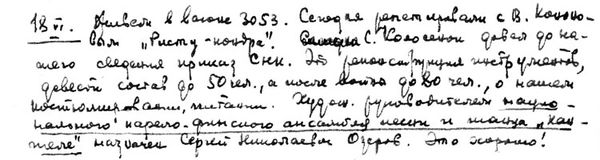 18 VI. Живем в вагоне 3053. Сегодня репетировали с В. Кононо-
вым „Ристу-кондра". С. Колосенок довел до на-
шего сведения приказ СНК. Это реконструкция инструментов,
довести состав до 50 чел., а после войны до 80 чел., о нашем
костюмировании, питании. Худож. руководителем нацио-
нального карело-финского ансамбля песни и танца „Кан-
теле" назначен Сергей Николаевич Озеров. Это хорошо!